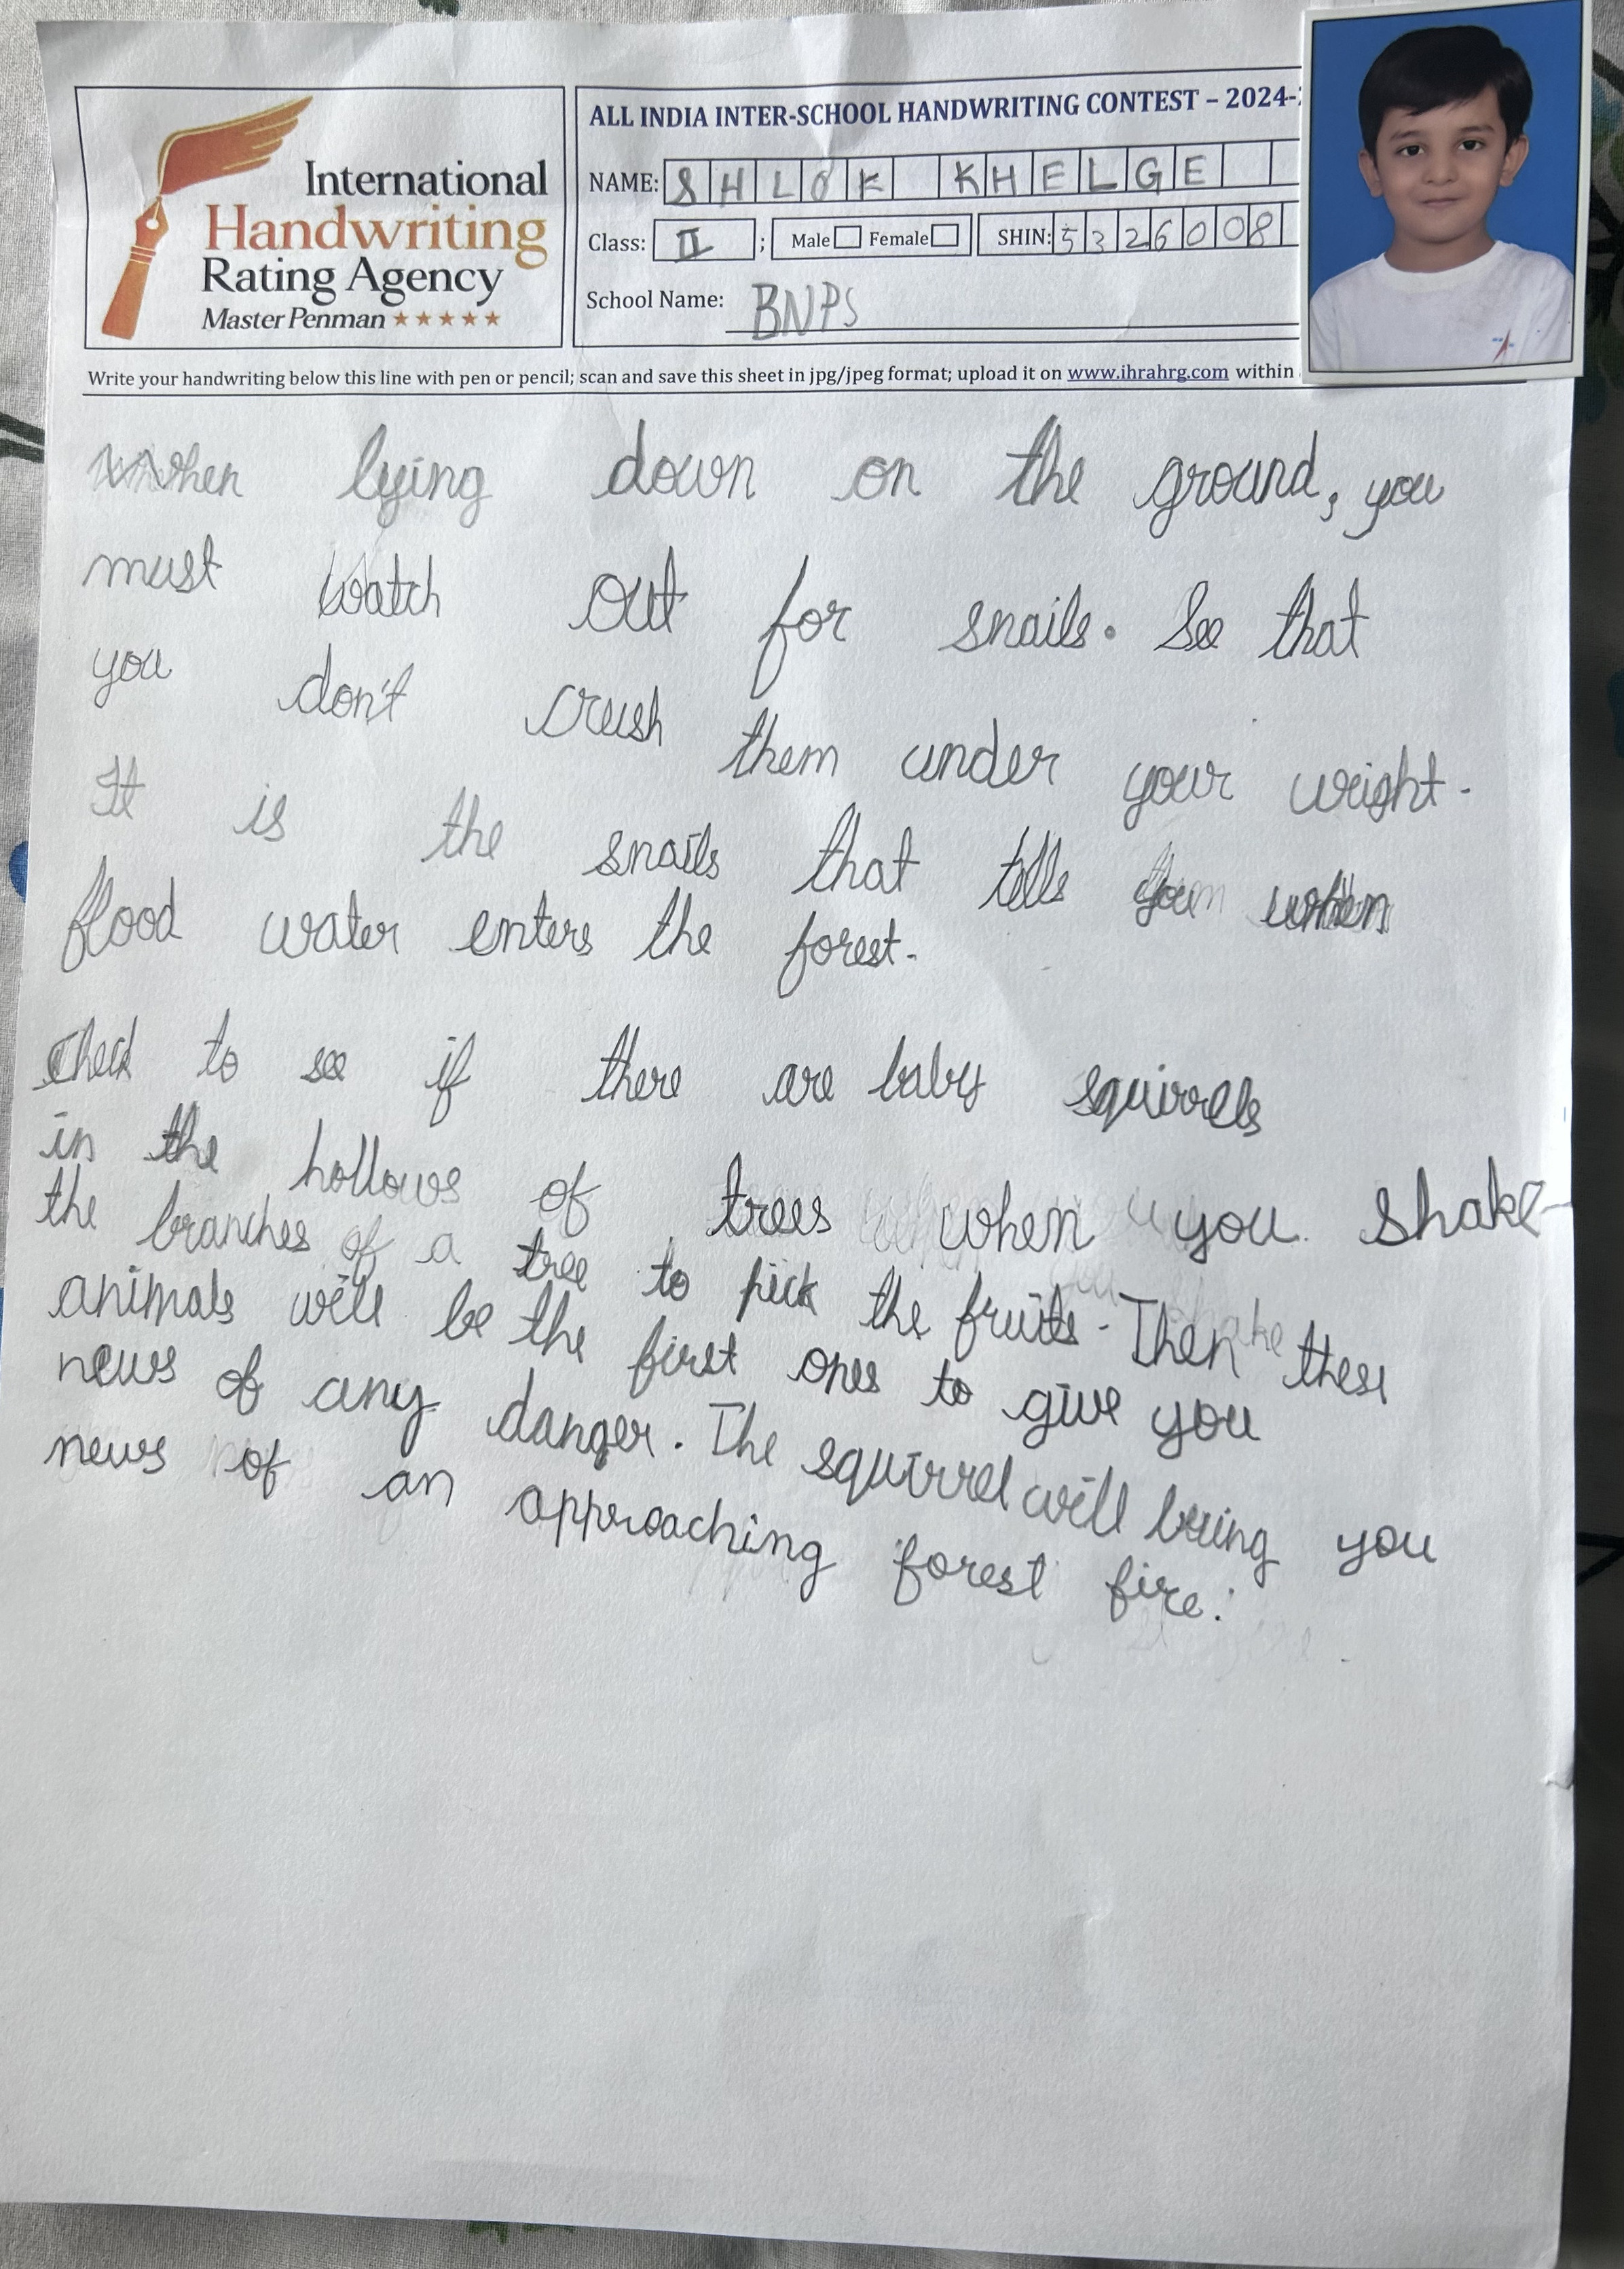 International
Handwriting
Rating Agency
Master Penman ★★★★★
ALL INDIA INTER-SCHOOL HANDWRITING CONTEST – 2024-
NAME: SHLOK KHELGE
Class: II ; Male Female SHIN: 5326008
School Name: BNPS
Write your handwriting below this line with pen or pencil; scan and save this sheet in jpg/jpeg format; upload it on www.ihrahrg.com within
when lying down on the ground, you
must watch out for snails. See that
you don't crush them under your weight.
It is the snails that tells you when
flood water enters the forest.
Check to see if there are baby squirrels
in the hollows of trees when you shake
the branches of a tree to pick the fruits. Then these
animals will be the first ones to give you
news of any danger. The squirrel will bring you
news of an approaching forest fire.